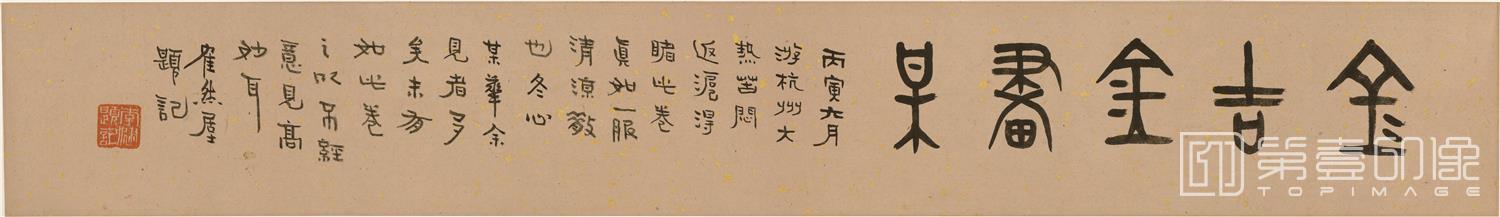 金吉金畫某
丙寅六月
游杭州大
熱苦悶
返滬得
睹此卷
眞如一服
清涼散
也冬心
某華余
見者多
矣未有
如此卷
之以不經
意見高
妙耳
然居
題記
題記
第壹印像
TOPIMAGE